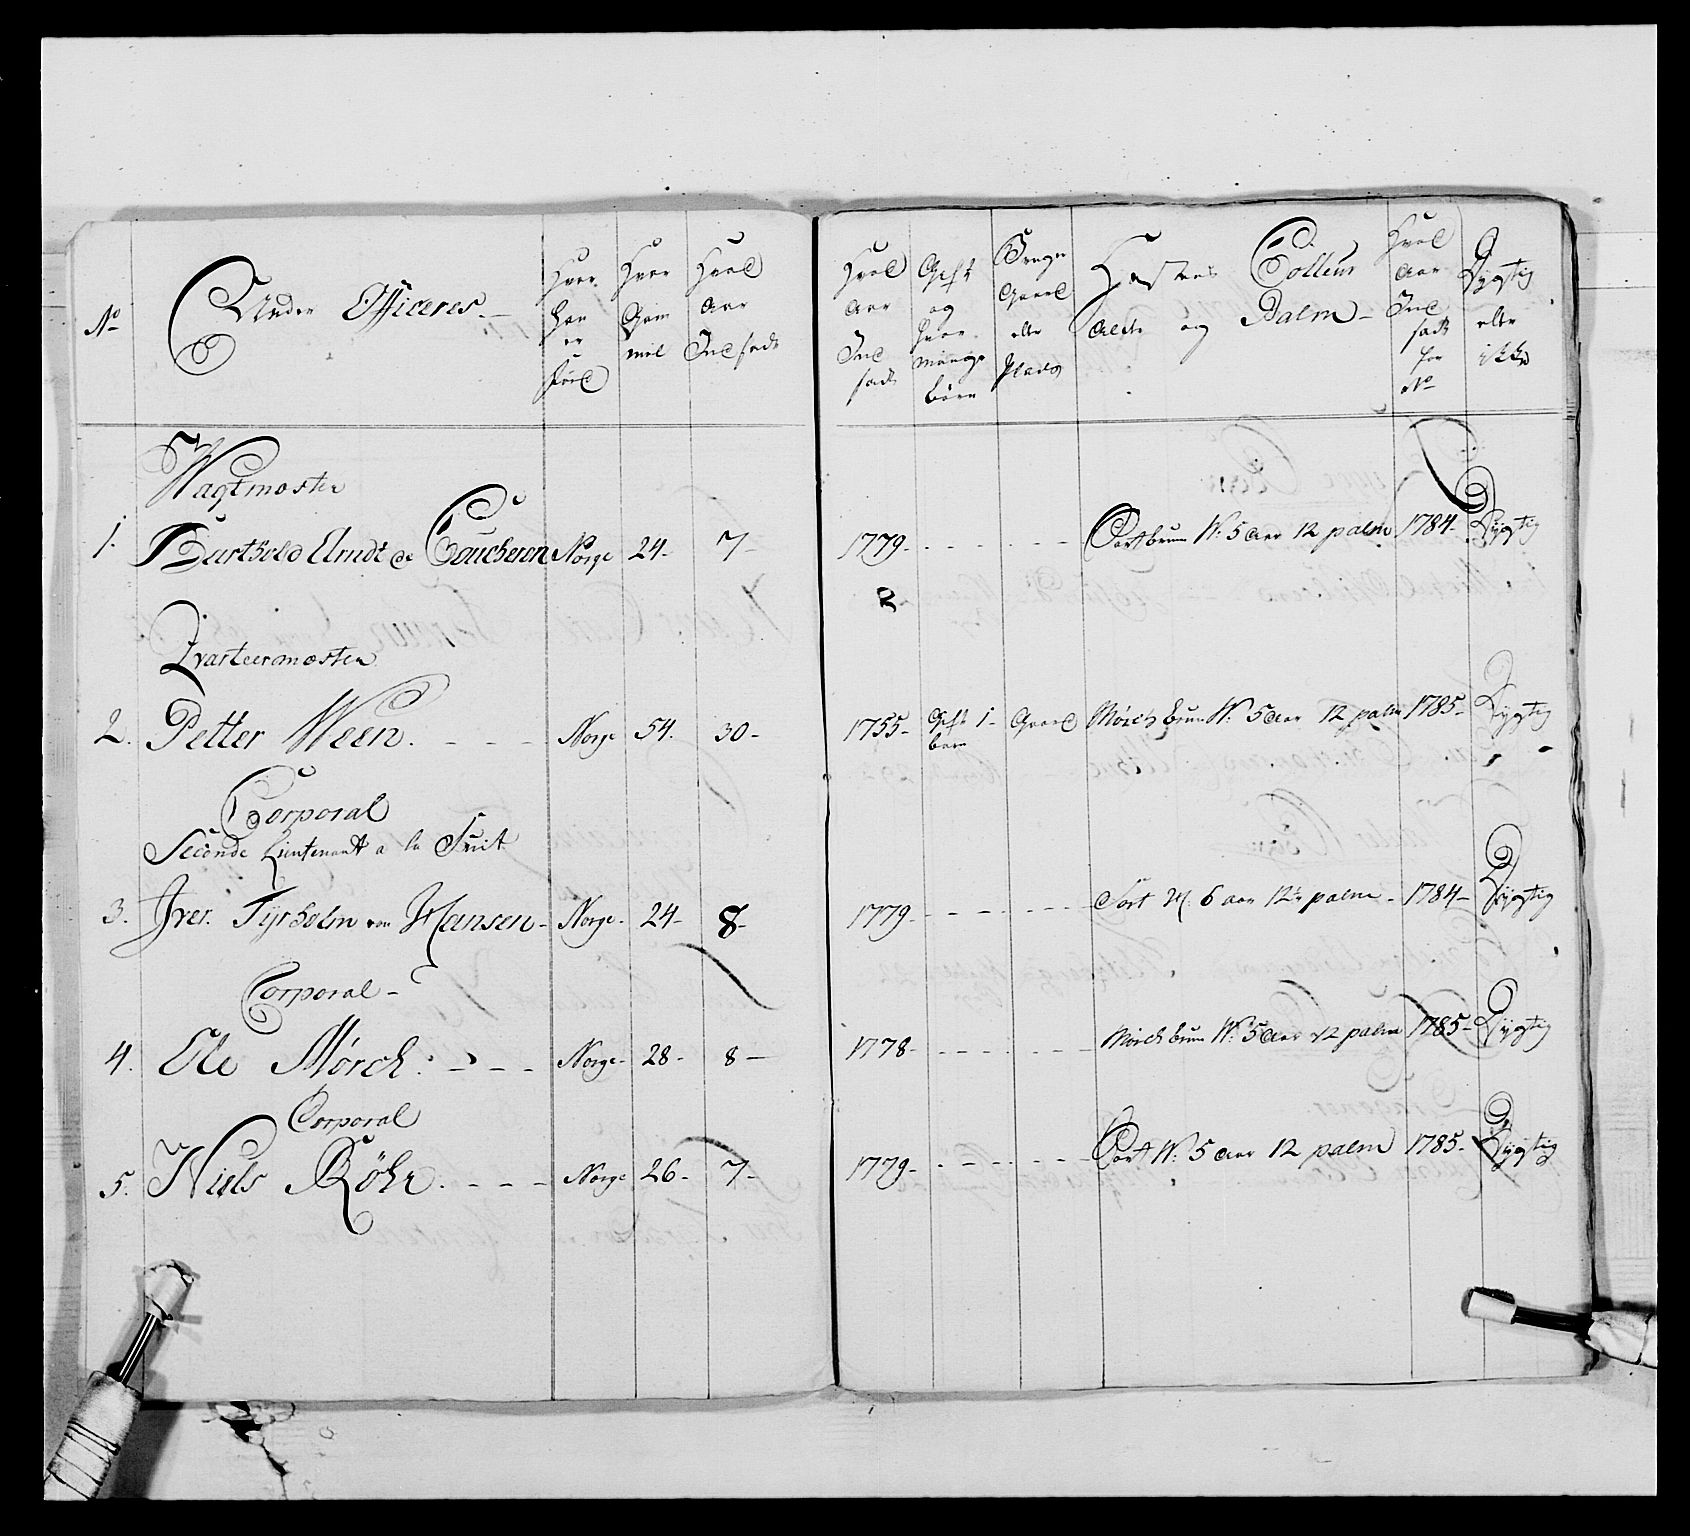 No
Under Officeres.
Hvor
han
er
föd
Hvor
Gam
mel
Hvad
Aar
Ind satt
Hvad
Aar
Ind
satt
Gift
og
hvor
mange
börn
Bruger
Gaard
eller
Plads
Hestens Colleur
Alder og Palm
Hvad
Aar
Ind
satt
for
No
Dygtig
eller
ikke
Wagtmester
1. Barthold Arndt de Coucheron Norge 24 7 1779 Sortbrun W: 5 aar 12 palm 1784 Dygtig
Qvarteermester
2. Petter Ween Norge 54 30 1755 Gift 1 Gaard Mörck brun W: 5 aar 12 palm 1785 Dygtig
barn
Corporal
Seconde Lieutenant a la Suit
3. Iver Tyrholm von Hansen Norge 24 8 1779 Sort 6 aar 12½ palm 1784 Dygtig
Corporal
4. Ole Mörch Norge 28 8 1778 Mörck brun W: 5 aar 12 palm 1785 Dygtig
Corporal
5. Niels Röhr Norge 26 7 1779 Sort W: 5 aar 12 palm 1785 Dygtig